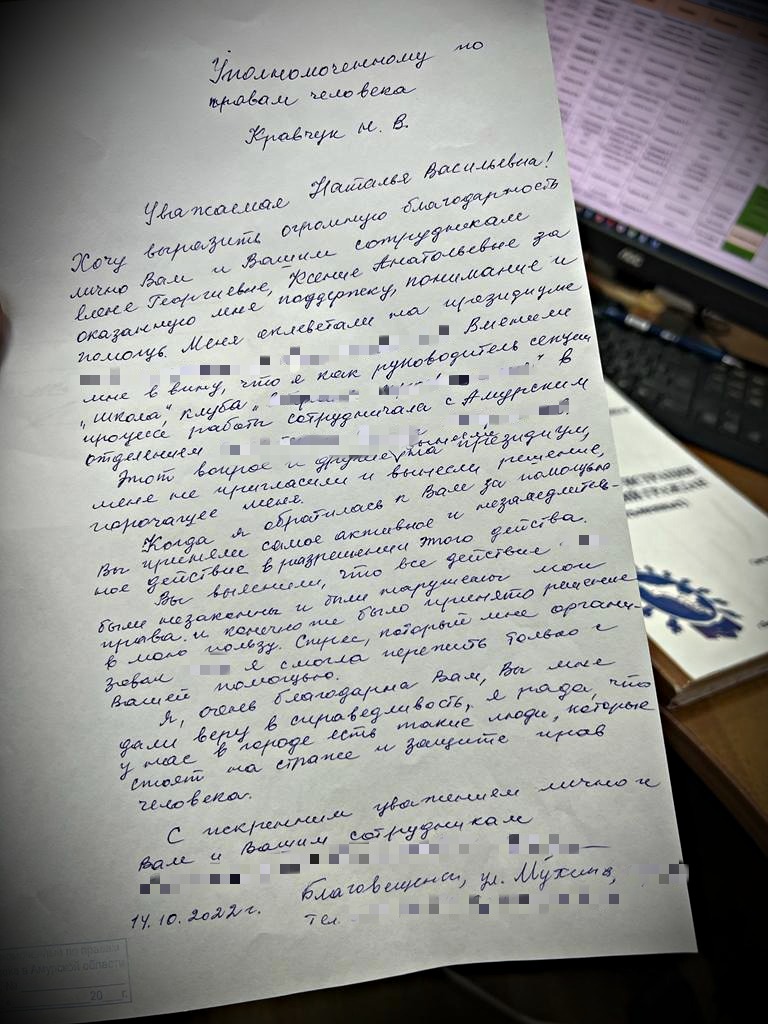 Уполномоченному по
правам человека
Кравчук Н. В.
Уважаемая Наталья Васильевна!
Хочу выразить огромную благодарность
лично Вам и Вашим сотрудникам
Елене Георгиевне, Ксение Анатольевне за
оказанную мне поддержку, понимание и
помощь. Меня оклеветали на президиуме
Вменили
мне в вину, что я как руководитель секции
„Школа", клуба „ " в
процессе работы сотрудничала с Амурским
отделением
Этот вопрос и другие вынесли на президиум,
меня не пригласили и вынесли решение,
порочащее меня.
Когда я обратилась к Вам за помощью
Вы приняли самое активное и незамедлитель-
ное действие в разрешении этого действа.
Вы выяснили, что все действие
были незаконны и были нарушены мои
права. и конечно же было принято решение
в мою пользу. Стрес, который мне органи-
зовал я смогла пережить только с
Вашей помощью.
Я, очень благодарна Вам, Вы мне
дали веру в справедливость, я рада, что
у нас в городе есть такие люди, которые
стоят на страже и защите прав
человека.
С искренним уважением лично к
Вам и Вашим сотрудникам
Благовещенск, ул. Мухина,
14.10.2022 г. тел.
по правам
в Амурской области
20 г.
AOC